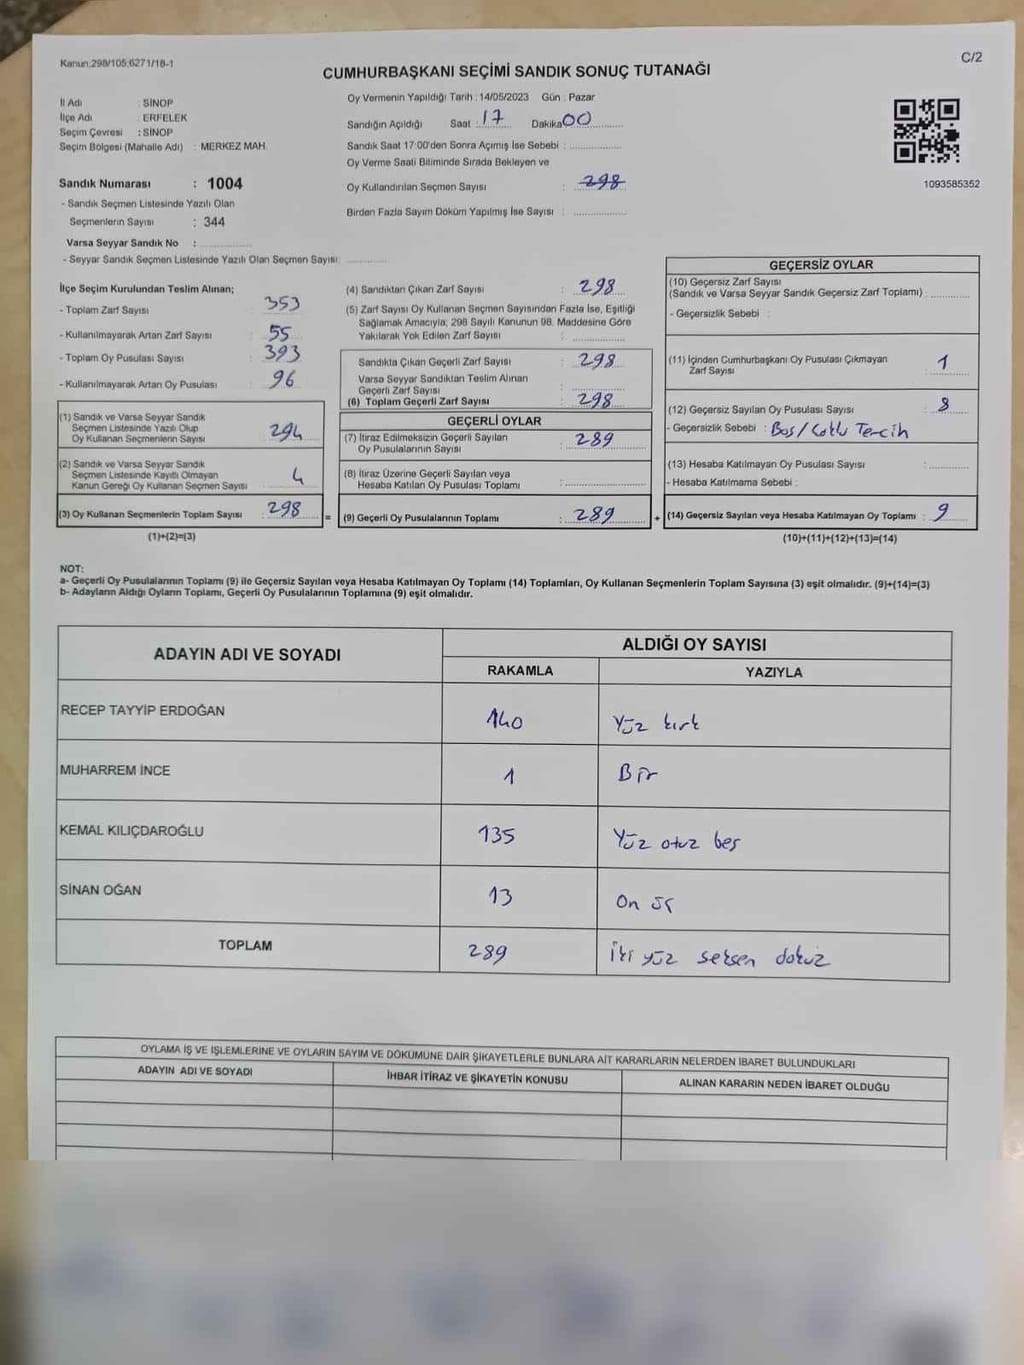 Kanun:298/105;6271/18-1
C/2
CUMHURBAŞKANI SEÇİMİ SANDIK SONUÇ TUTANAĞI
İl Adı : SİNOP
İlçe Adı : ERFELEK
Seçim Çevresi : SİNOP
Seçim Bölgesi (Mahalle Adı) : MERKEZ MAH.
Sandık Numarası : 1004
- Sandık Seçmen Listesinde Yazılı Olan
Seçmenlerin Sayısı : 344
Varsa Seyyar Sandık No :
- Seyyar Sandık Seçmen Listesinde Yazılı Olan Seçmen Sayısı:
Oy Vermenin Yapıldığı Tarih : 14/05/2023 Gün : Pazar
Sandığın Açıldığı Saat : 17 Dakika 00
Sandık Saat 17:00'den Sonra Açımış İse Sebebi :
Oy Verme Saati Bitiminde Sırada Bekleyen ve
Oy Kullandırılan Seçmen Sayısı : 298
Birden Fazla Sayım Döküm Yapılmış İse Sayısı :
1093585352
İlçe Seçim Kurulundan Teslim Alınan;
- Toplam Zarf Sayısı : 353
- Kullanılmayarak Artan Zarf Sayısı : 55
- Toplam Oy Pusulası Sayısı : 393
- Kullanılmayarak Artan Oy Pusulası : 96
(1) Sandık ve Varsa Seyyar Sandık
Seçmen Listesinde Yazılı Olup
Oy Kullanan Seçmenlerin Sayısı : 294
(2) Sandık ve Varsa Seyyar Sandık
Seçmen Listesinde Kayıtlı Olmayan
Kanun Gereği Oy Kullanan Seçmen Sayısı : 4
(3) Oy Kullanan Seçmenlerin Toplam Sayısı : 298
(1)+(2)=(3)
(4) Sandıktan Çıkan Zarf Sayısı : 298
(5) Zarf Sayısı Oy Kullanan Seçmen Sayısından Fazla İse, Eşitliği
Sağlamak Amacıyla; 298 Sayılı Kanunun 98. Maddesine Göre
Yakılarak Yok Edilen Zarf Sayısı :
Sandıkta Çıkan Geçerli Zarf Sayısı : 298
Varsa Seyyar Sandıktan Teslim Alınan
Geçerli Zarf Sayısı :
(6) Toplam Geçerli Zarf Sayısı : 298
GEÇERLİ OYLAR
(7) İtiraz Edilmeksizin Geçerli Sayılan
Oy Pusulalarının Sayısı : 289
(8) İtiraz Üzerine Geçerli Sayılan veya
Hesaba Katılan Oy Pusulası Toplamı :
= (9) Geçerli Oy Pusulalarının Toplamı : 289
GEÇERSİZ OYLAR
(10) Geçersiz Zarf Sayısı
(Sandık ve Varsa Seyyar Sandık Geçersiz Zarf Toplamı) :
- Geçersizlik Sebebi :
(11) İçinden Cumhurbaşkanı Oy Pusulası Çıkmayan
Zarf Sayısı : 1
(12) Geçersiz Sayılan Oy Pusulası Sayısı : 8
- Geçersizlik Sebebi : Boş/Çoklu Tercih
(13) Hesaba Katılmayan Oy Pusulası Sayısı :
- Hesaba Katılmama Sebebi :
+ (14) Geçersiz Sayılan veya Hesaba Katılmayan Oy Toplamı : 9
(10)+(11)+(12)+(13)=(14)
NOT:
a- Geçerli Oy Pusulalarının Toplamı (9) ile Geçersiz Sayılan veya Hesaba Katılmayan Oy Toplamı (14) Toplamları, Oy Kullanan Seçmenlerin Toplam Sayısına (3) eşit olmalıdır. (9)+(14)=(3)
b- Adayların Aldığı Oyların Toplamı, Geçerli Oy Pusulalarının Toplamına (9) eşit olmalıdır.
ADAYIN ADI VE SOYADI
ALDIĞI OY SAYISI
RAKAMLA YAZIYLA
RECEP TAYYİP ERDOĞAN 140 Yüz kırk
MUHARREM İNCE 1 Bir
KEMAL KILIÇDAROĞLU 135 Yüz otuz beş
SİNAN OĞAN 13 On üç
TOPLAM 289 İki yüz seksen dokuz
OYLAMA İŞ VE İŞLEMLERİNE VE OYLARIN SAYIM VE DÖKÜMÜNE DAİR ŞİKAYETLERLE BUNLARA AİT KARARLARIN NELERDEN İBARET BULUNDUKLARI
ADAYIN ADI VE SOYADI İHBAR İTİRAZ VE ŞİKAYETİN KONUSU ALINAN KARARIN NEDEN İBARET OLDUĞU